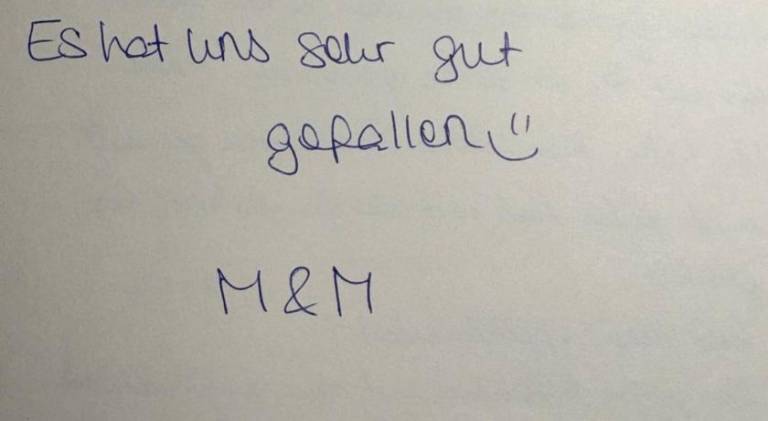 Es hat uns sehr gut
gefallen
M & M